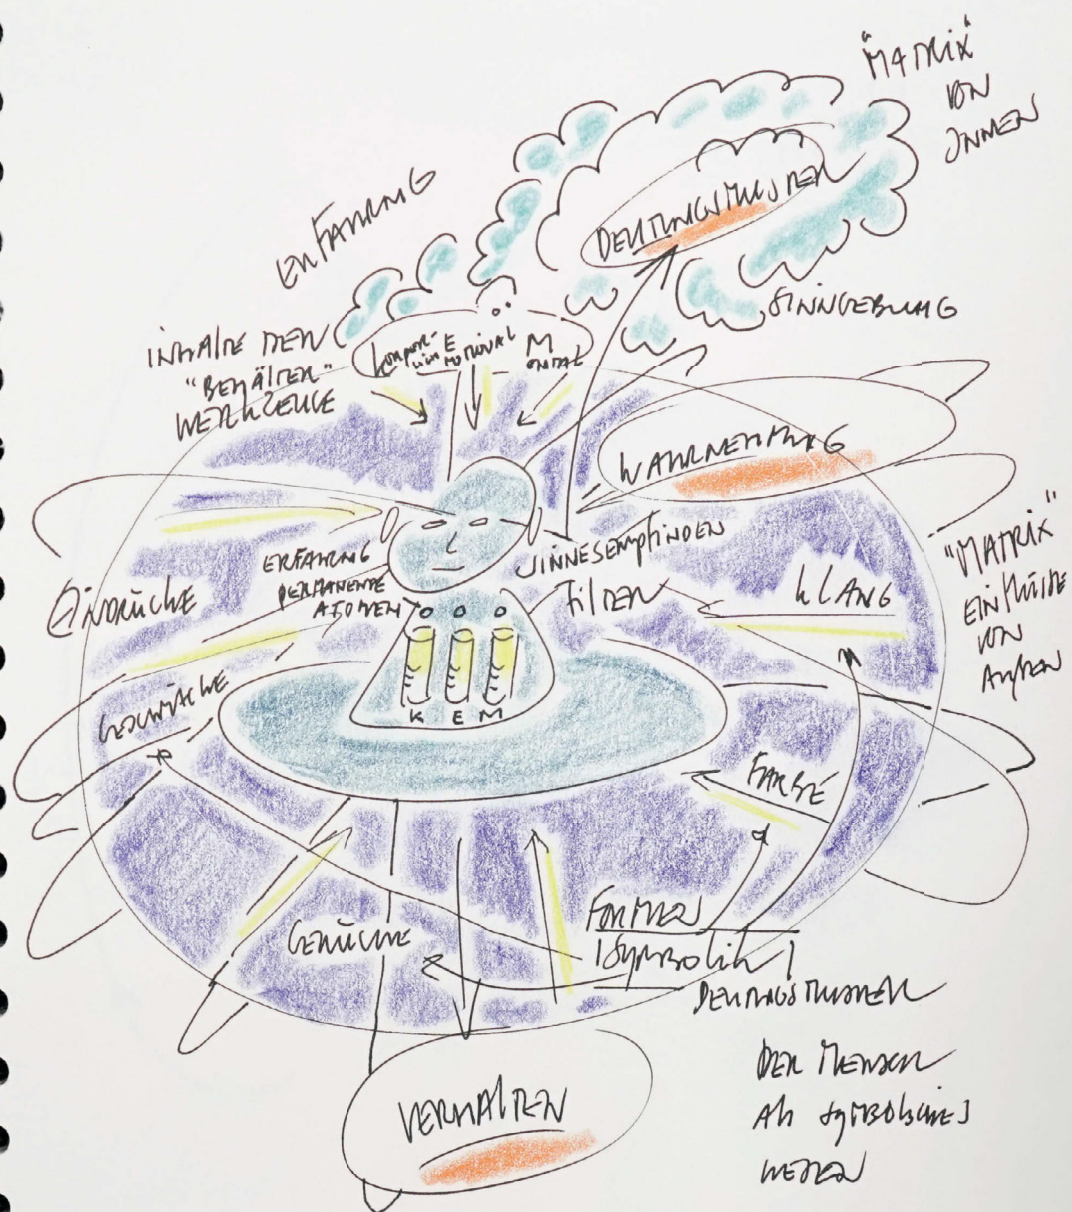 "MATRIX"
VON
INNEN
ERFAHRUNG
DEUTUNGSMUSTER
SINNGEBUNG
INHALTE DER
"BEHÄLTER"
WERKZEUGE
KÖRPERLICH EMOTIONAL MENTAL
WAHRNEHMUNG
SINNESEMPFINDEN
FILTER
ERFAHRUNG
PERMANENTE
ATOMEN
EINDRÜCKE
KLANG
"MATRIX"
EINFLÜSSE
VON
AUßEN
K E M
GESCHMÄCKE
FARBE
GERÜCHE
FORMEN
|SYMBOLIK|
DEUTUNGSMUSTER
VERHALTEN
DER MENSCH
ALS SYMBOLISCHES
WESEN